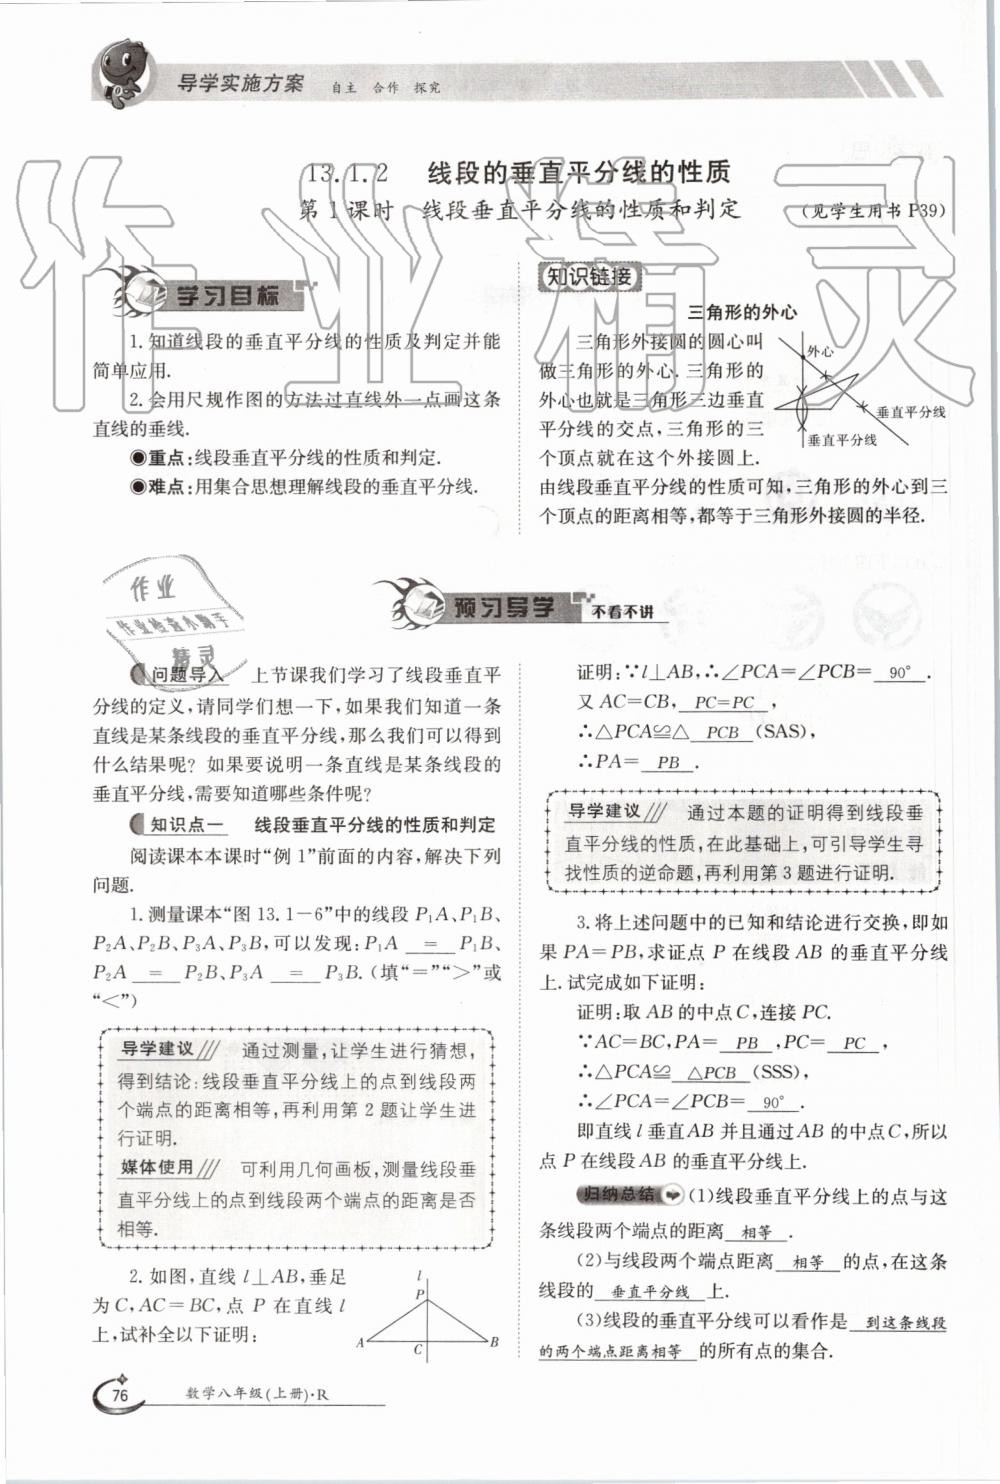 导学实施方案 自主 合作 探究
13.1.2 线段的垂直平分线的性质
第1课时 线段垂直平分线的性质和判定 (见学生用书P39)
学习目标
1.知道线段的垂直平分线的性质及判定并能
简单应用.
2.会用尺规作图的方法过直线外一点画这条
直线的垂线.
◉重点:线段垂直平分线的性质和判定.
◉难点:用集合思想理解线段的垂直平分线.
知识链接
三角形的外心
三角形外接圆的圆心叫
做三角形的外心.三角形的
外心也就是三角形三边垂直
平分线的交点,三角形的三
个顶点就在这个外接圆上.
由线段垂直平分线的性质可知,三角形的外心到三
个顶点的距离相等,都等于三角形外接圆的半径.
外心
垂直平分线
垂直平分线
预习导学 不看不讲
问题导入 上节课我们学习了线段垂直平
分线的定义,请同学们想一下,如果我们知道一条
直线是某条线段的垂直平分线,那么我们可以得到
什么结果呢?如果要说明一条直线是某条线段的
垂直平分线,需要知道哪些条件呢?
知识点一 线段垂直平分线的性质和判定
阅读课本本课时“例1”前面的内容,解决下列
问题.
1.测量课本“图13.1-6”中的线段P₁A、P₁B、
P₂A、P₂B、P₃A、P₃B,可以发现:P₁A = P₁B、
P₂A = P₂B、P₃A = P₃B.(填“=”“>”或
“<”)
导学建议 通过测量,让学生进行猜想,
得到结论:线段垂直平分线上的点到线段两
个端点的距离相等,再利用第2题让学生进
行证明.
媒体使用 可利用几何画板,测量线段垂
直平分线上的点到线段两个端点的距离是否
相等.
2.如图,直线l⊥AB,垂足
为C,AC=BC,点P在直线l
上,试补全以下证明:
l
P
A
C
B
证明:∵l⊥AB,∴∠PCA=∠PCB= 90° .
又AC=CB, PC=PC ,
∴△PCA≌△ PCB (SAS),
∴PA= PB .
导学建议 通过本题的证明得到线段垂
直平分线的性质,在此基础上,可引导学生寻
找性质的逆命题,再利用第3题进行证明.
3.将上述问题中的已知和结论进行交换,即如
果PA=PB,求证点P在线段AB的垂直平分线
上.试完成如下证明:
证明:取AB的中点C,连接PC.
∵AC=BC,PA= PB ,PC= PC ,
∴△PCA≌ △PCB (SSS),
∴∠PCA=∠PCB= 90° .
即直线l垂直AB并且通过AB的中点C,所以
点P在线段AB的垂直平分线上.
归纳总结 (1)线段垂直平分线上的点与这
条线段两个端点的距离 相等 .
(2)与线段两个端点距离 相等 的点,在这条
线段的 垂直平分线 上.
(3)线段的垂直平分线可以看作是 到这条线段
的两个端点距离相等 的所有点的集合.
76 数学八年级(上册)·R
作业精灵
作业
作业检查小助手
精灵